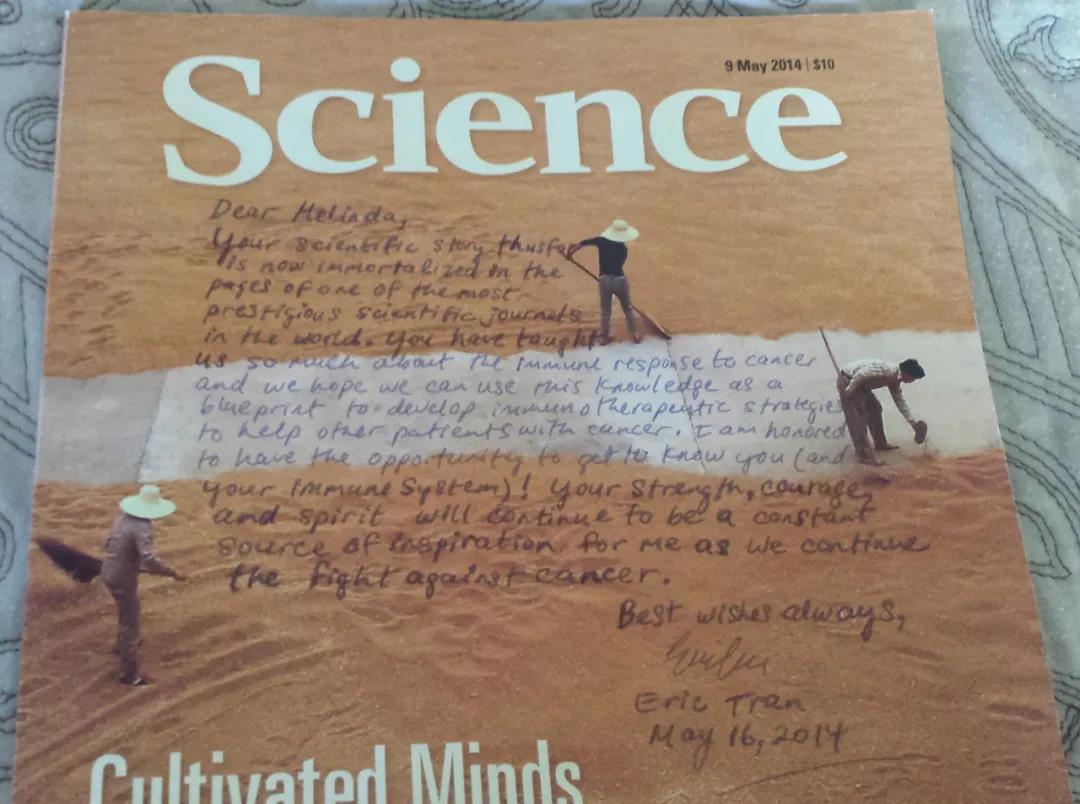 Science
9 May 2014 | $10
Dear Melinda,
Your scientific story thusfar
is now immortalized in the
pages of one of the most
prestigious scientific journals
in the world. You have taught
us so much about the immune response to cancer
and we hope we can use this knowledge as a
blueprint to develop immunotherapeutic strategies
to help other patients with cancer. I am honored
to have the opportunity to get to know you (and
your immune system)! Your strength, courage,
and spirit will continue to be a constant
source of inspiration for me as we continue
the fight against cancer.
Best wishes always,
Eric Tran
May 16, 2014
Cultivated Minds